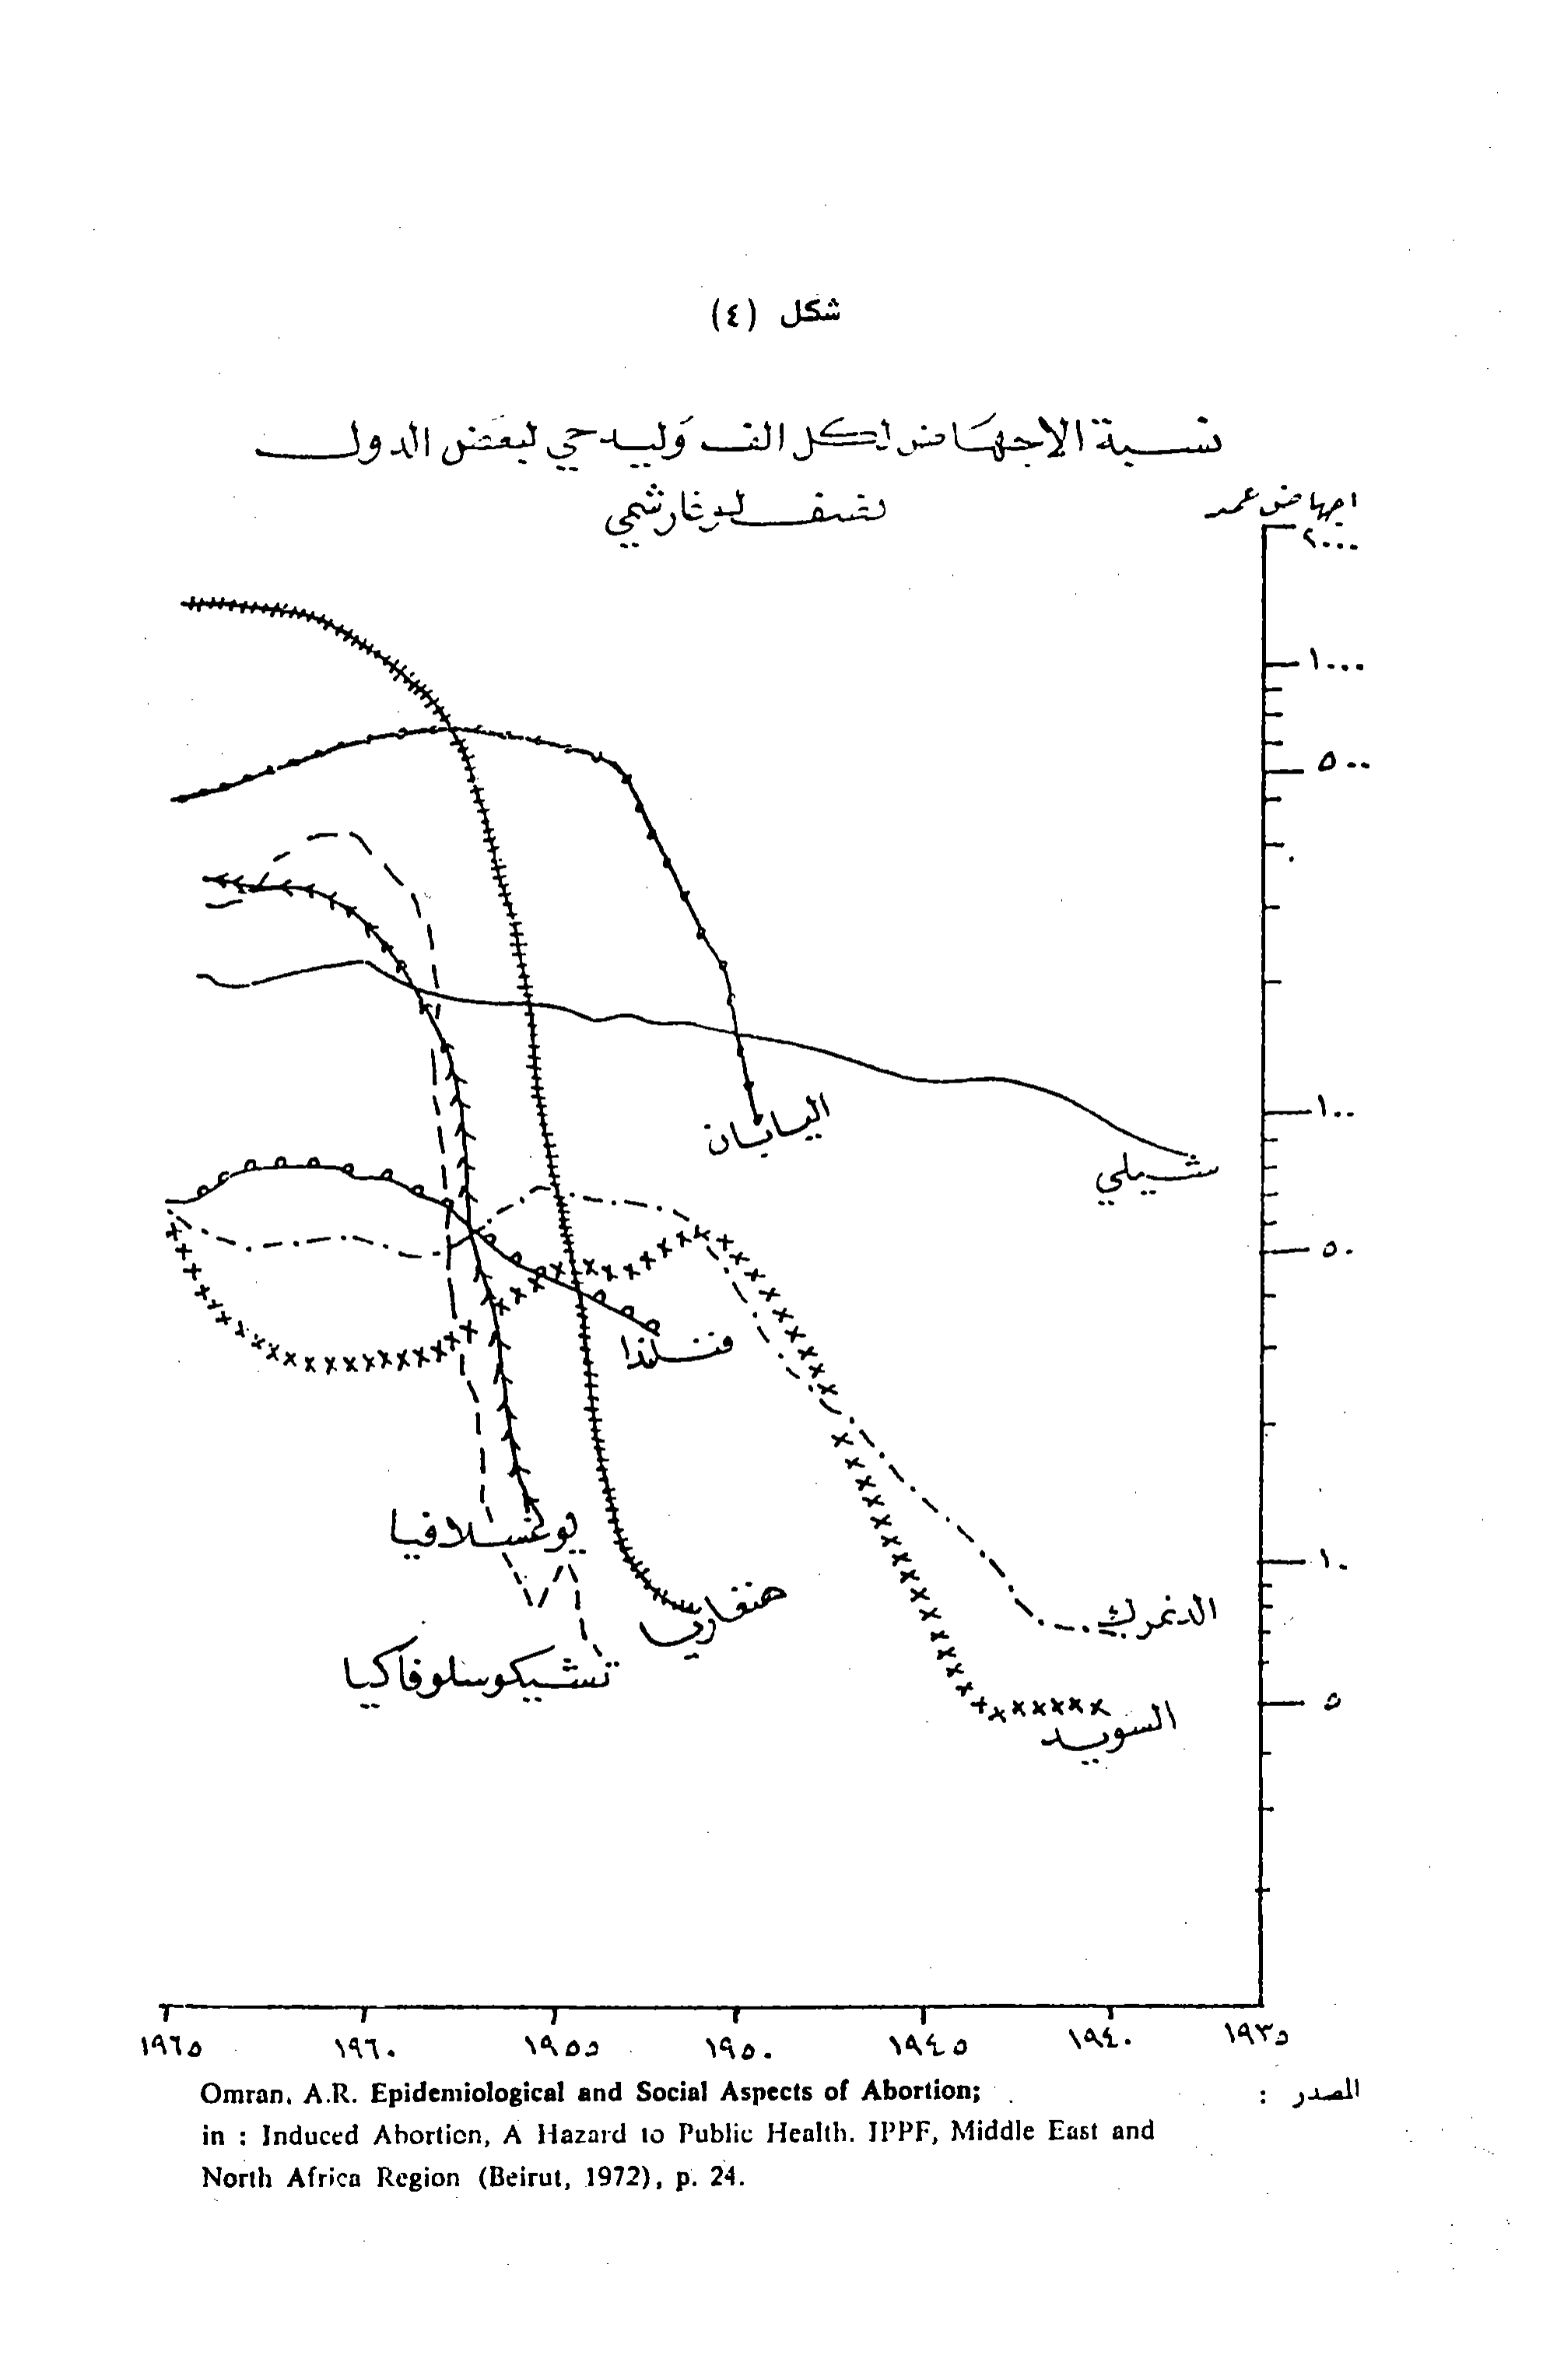 شكل (٤)
نسبة الاجهاض لكل الف وليد حي لبعض الدول
نصف لوغارثمي
اجهاض عمد
٢٠٠٠
١٠٠٠
٥٠٠
١٠٠
٥٠
١٠
٥
اليابان
شيلي
فنلندا
يوغسلافيا
هنغاريا
الدنمرك
تشيكوسلوفاكيا
السويد
١٩٣٥
١٩٤٠
١٩٤٥
١٩٥٠
١٩٥٥
١٩٦٠
١٩٦٥
المصدر :
Omran, A.R. Epidemiological and Social Aspects of Abortion;
in : Induced Abortion, A Hazard to Public Health. IPPF, Middle East and
North Africa Region (Beirut, 1972), p. 24.